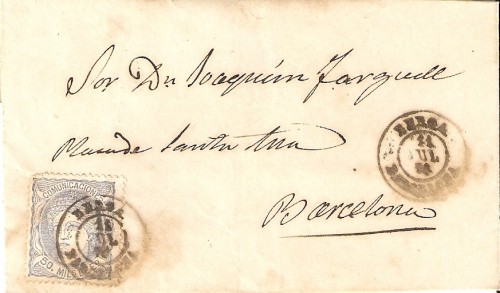 Sor Dn Joaquin Farguell
Plaza de Santa Ana
Barcelona
BERGA
JUL
BARCELONA
COMUNICACIONES
50. MILS
BERGA
JUL